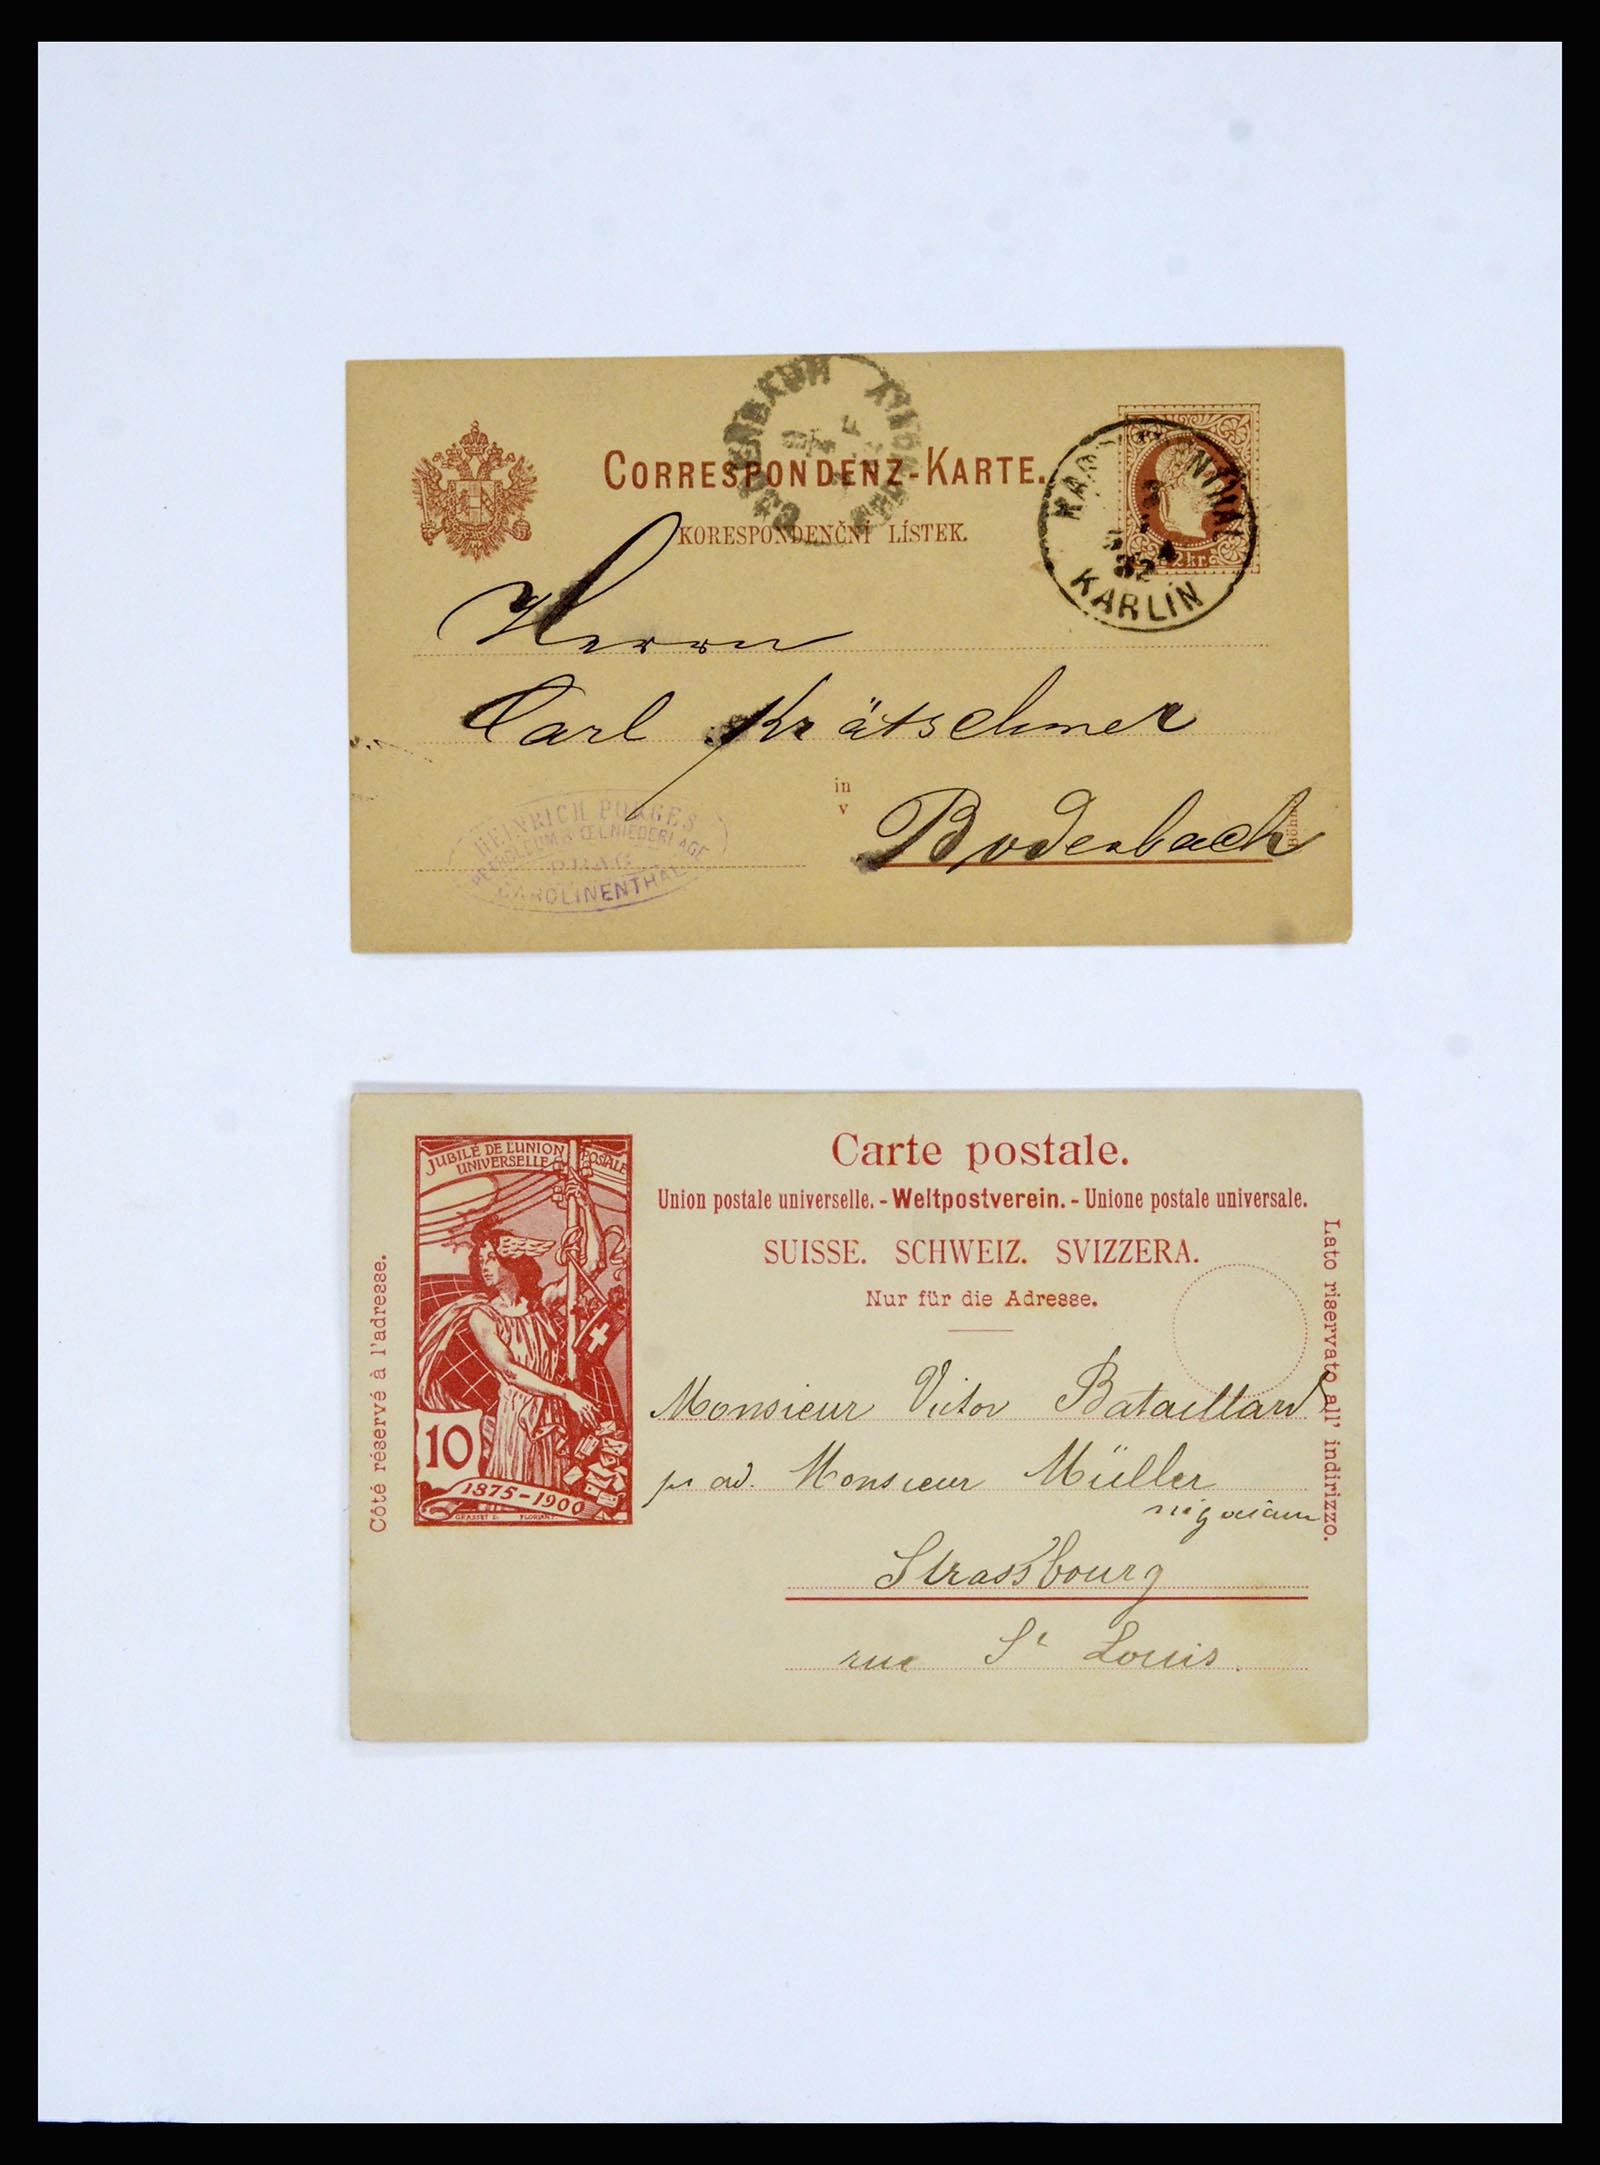 CORRESPONDENZ-KARTE.
KORESPONDENČNÍ LÍSTEK.
2 kr.
KARLÍN
82
Herrn
Carl Krätschmer
in
v
Bodenbach
HEINRICH PORGES
PETROLEUM & OELNIEDERLAGE
PRAG
CAROLINENTHAL
JUBILÉ DE L'UNION POSTALE
UNIVERSELLE
10
1875-1900
GRASSET D. FLORIAN
Côté réservé à l'adresse.
Carte postale.
Union postale universelle. - Weltpostverein. - Unione postale universale.
SUISSE. SCHWEIZ. SVIZZERA.
Nur für die Adresse.
Lato riservato all' indirizzo.
Monsieur Victor Bataillard
pr ad. Monsieur Müller
négociant
Strassbourg
rue St Louis.